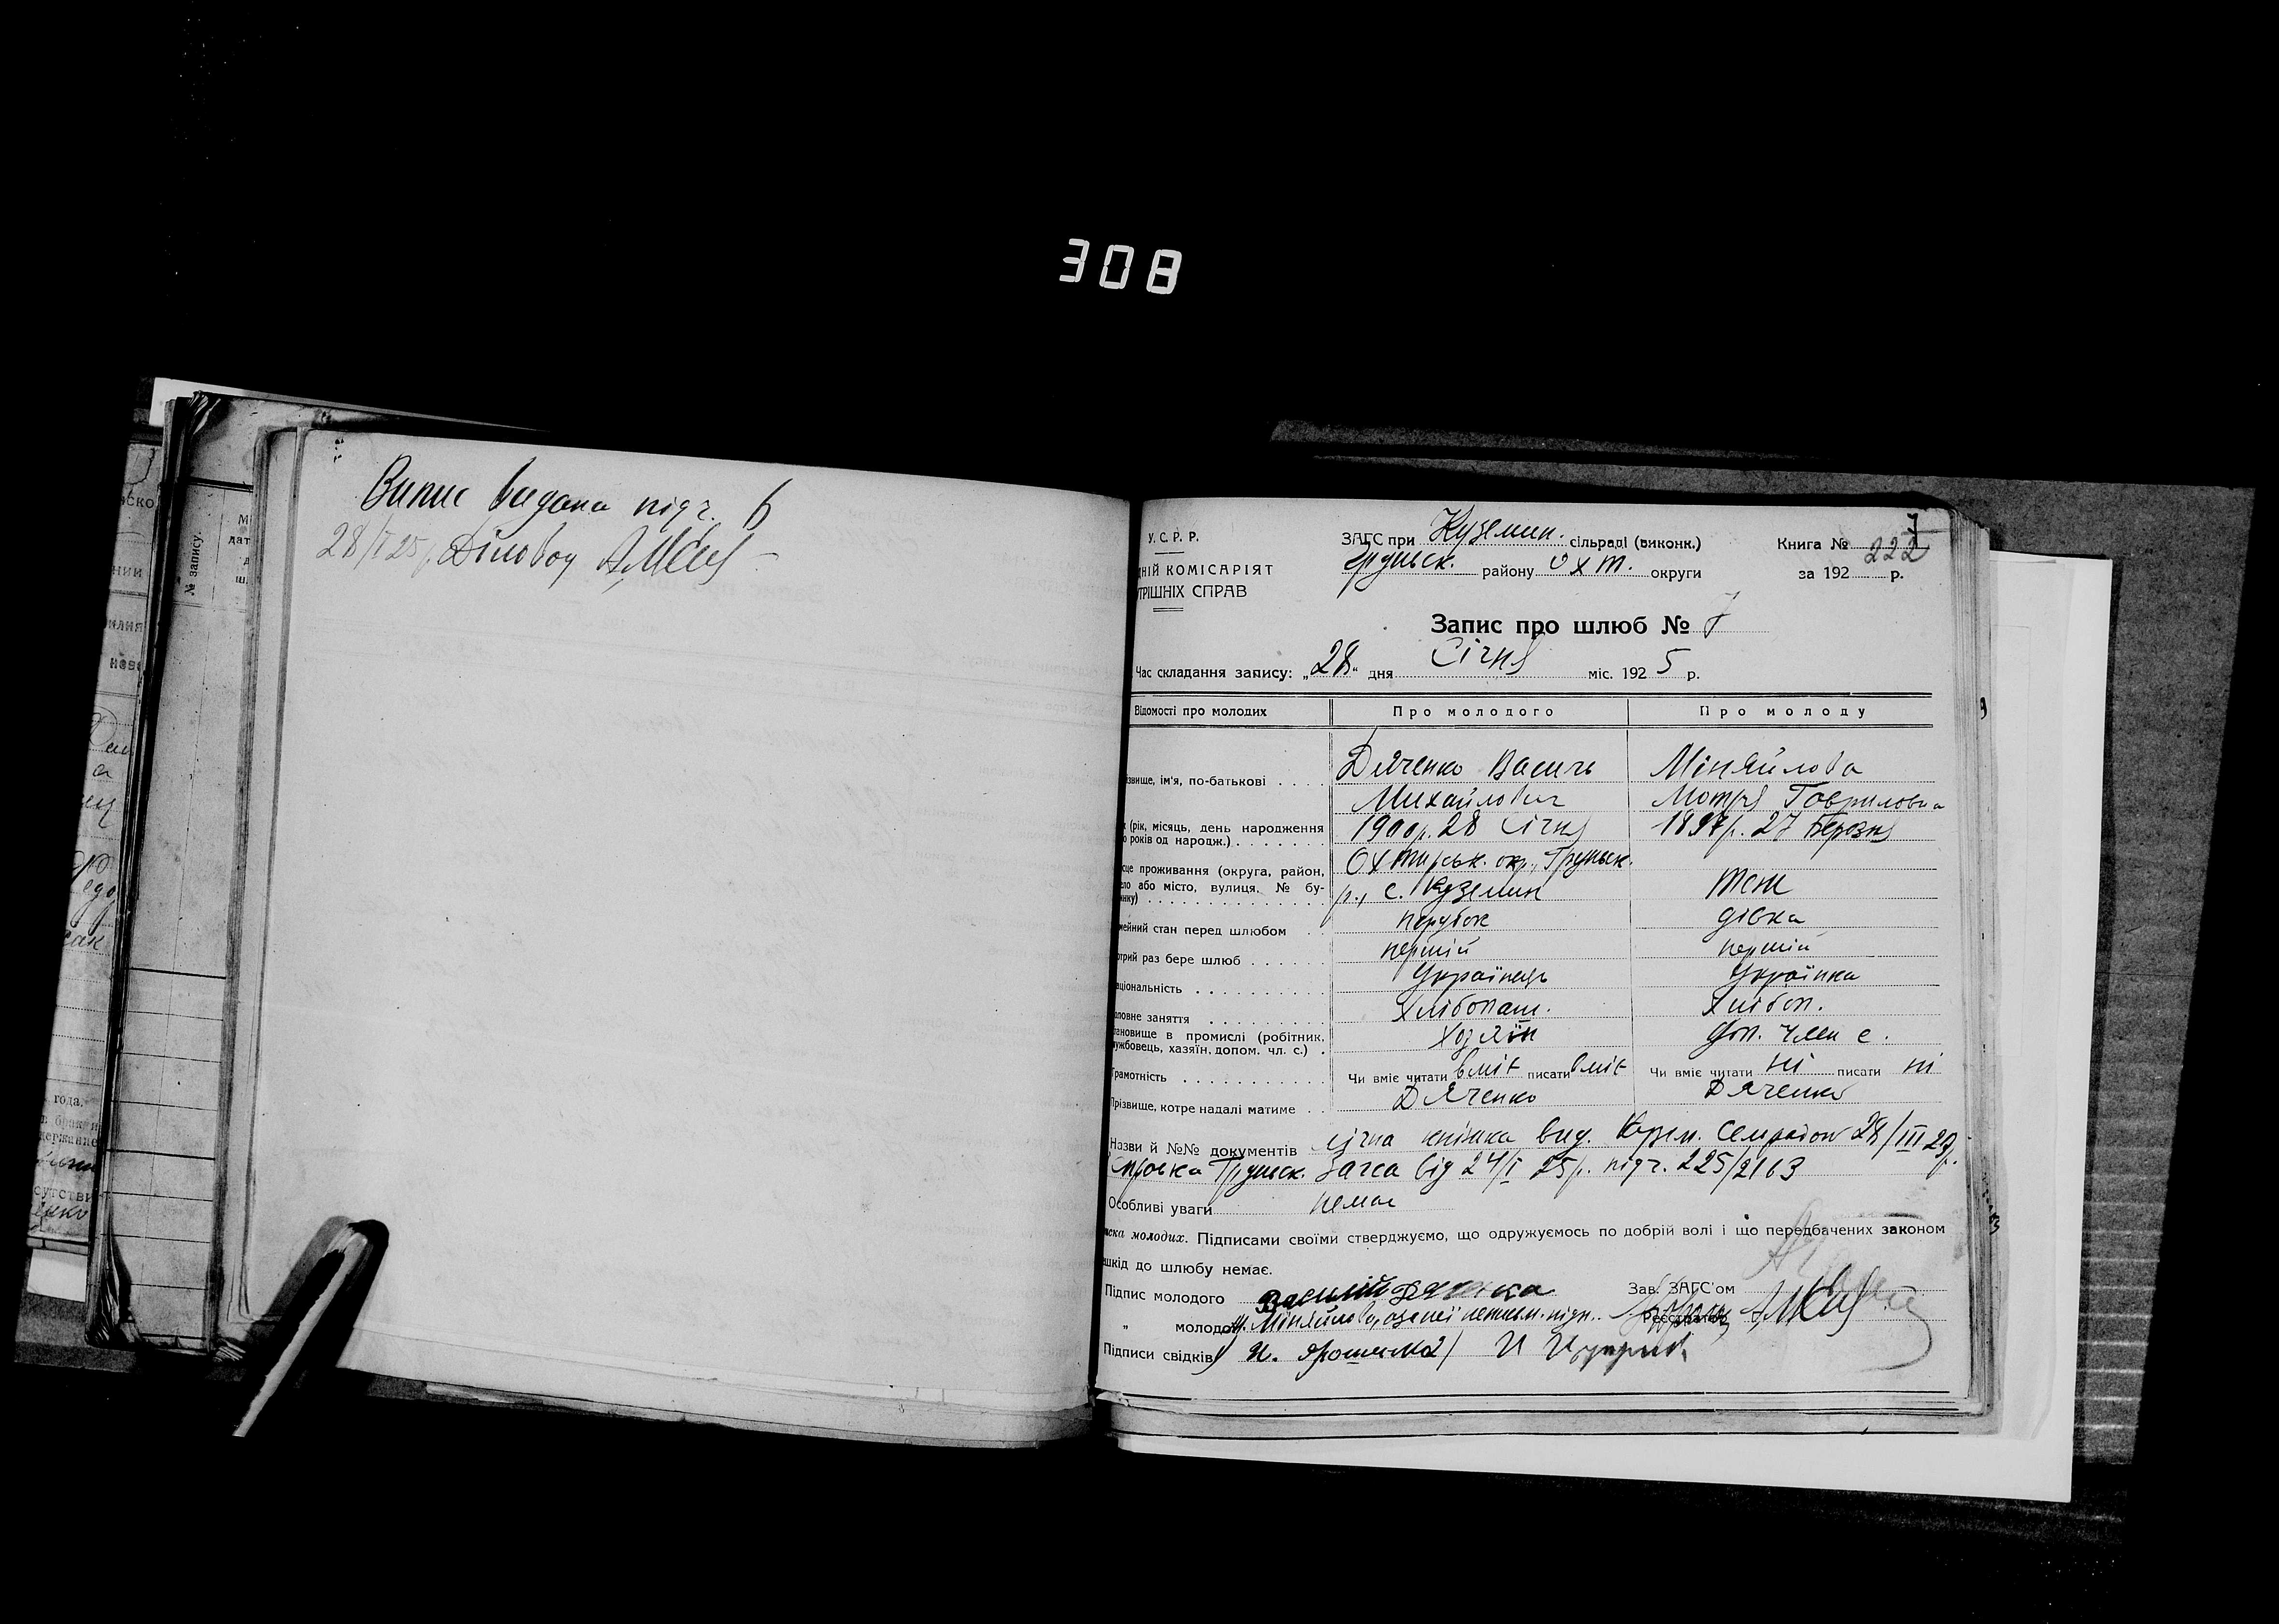 308
Випис видана під ч. 6
28/I 25 р. Діловод
У.С.Р.Р.
ДНІЙ КОМІСАРІЯТ
ТРІШНІХ СПРАВ
ЗАГС при Куземин. сільраді (виконк.)
Груньск. району Охт. округи
7
Книга № 222
за 192 р.
Запис про шлюб № 7
Час складання запису: „28“ дня Січня міс. 1925 р.
Відомості про молодих
Про молодого
Про молоду
звище, ім'я, по-батькові . . . .
Дяченко Василь
Михайлович
Міняйлова
Мотря Говриловна
к (рік, місяць, день народження
о років од народж.) . . . . . . .
1900 р. 28 Січня
1897 р. 27 Березня
сце проживання (округа, район,
ело або місто, вулиця, № бу-
инку) . . . . . . . . . . . . . .
Охтирськ. окр., Груньск.
р., с. Куземин
теж
мейний стан перед шлюбом . .
парубок
дівка
отрий раз бере шлюб . . . . . .
перший
перший
аціональність . . . . . . . . . .
Українець
Українка
ловне заняття . . . . . . . . .
Хлібопаш.
Хлібоп.
тановище в промислі (робітник,
ужбовець, хазяїн, допом. чл. с.) .
Хозяїн
доп. член с.
Грамотність . . . . . . . . . . .
Чи вміє читати вміє писати вміє
Чи вміє читати ні писати ні
Прізвище, котре надалі матиме . .
Дяченко
Дяченко
Назви й №№ документів вид. 28/III
Груньск. Загса від 24/I 25 р. під ч. 225/2163
Особливі уваги немає
иска молодих. Підписами своїми стверджуємо, що одружуємось по добрій волі і що передбачених законом
шкід до шлюбу немає.
Підпис молодого Василий
Зав. ЗАГС'ом
„ молодої М. Міняйлова, а за неї
Реєстратор
Підписи свідків